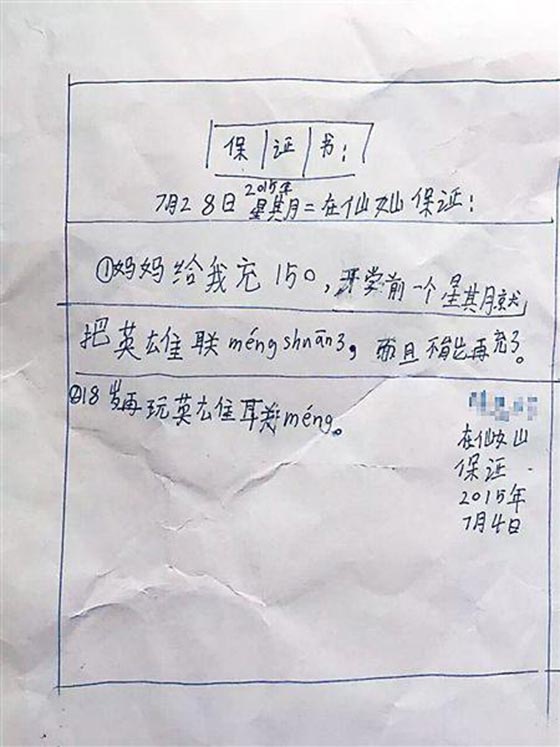 保证书:
2015年
7月28日星期二在仙女山保证:
①妈妈给我充150,开学前一个星期就
把英雄联méng shuān3,而且不能再充了。
②18岁再玩英雄联méng。
在仙女山
保证
2015年
7月4日